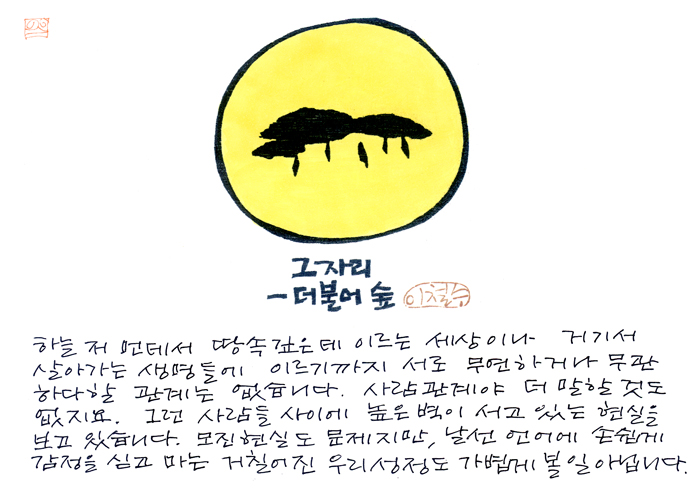 그 자리
- 더불어 숲
이철수
하늘 저 먼데서 땅속깊은데 이르는 세상이나 거기서
살아가는 생명들에 이르기까지 서로 무연하거나 무관
하다할 관계는 없습니다. 사람관계야 더 말할 것도
없지요. 그런 사람들 사이에 높은벽이 서고 있는 현실을
보고 있습니다. 모진현실도 문제지만, 날선 언어에 손쉽게
감정을 싣고 마는 거칠어진 우리성정도 가볍게 볼 일 아닙니다.